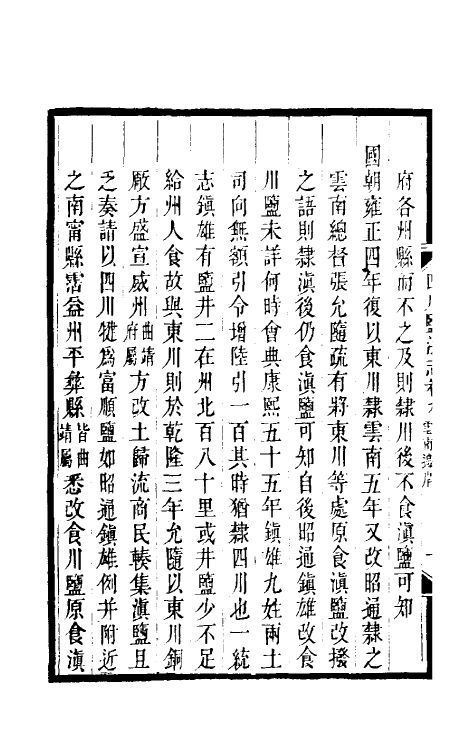 府各州縣而不之及則隸川後不食滇鹽可知
國朝雍正四年復以東川隸雲南五年又改昭通隸之
雲南總督張允隨疏有將東川等處原食滇鹽改撥
之語則隸滇後仍食滇鹽可知自後昭通鎮雄改食
川鹽未詳何時會典康熙五十五年鎮雄九姓兩土
司向無額引令增陸引一百其時猶隸四川也一統
志鎮雄有鹽井二在州北百八十里或井鹽少不足
給州人食故與東川則於乾隆三年允隨以東川銅
厰方盛宣威州曲靖府屬方改土歸流商民輳集滇鹽且
乏奏請以四川犍爲富順鹽如昭通鎮雄例并附近
之南甯縣霑益州平彝縣皆曲靖屬悉改食川鹽原食滇